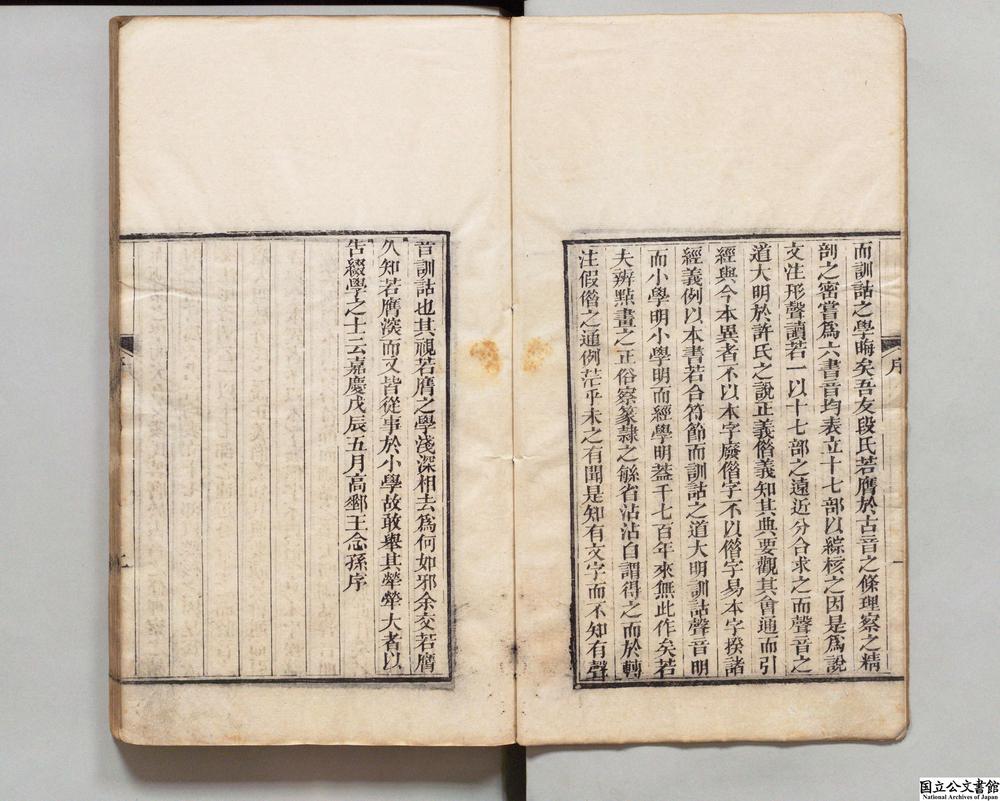 而訓詁之學晦矣吾友段氏若膺於古音之條理察之精
剖之密嘗爲六書音均表立十七部以綜核之因是爲說
文注形聲讀若一以十七部之遠近分合求之而聲音之
道大明於許氏之說正義借義知其典要觀其會通而引
經與今本異者不以本字廢借字不以借字易本字揆諸
經義例以本書若合符節而訓詁之道大明訓詁聲音明
而小學明小學明而經學明葢千七百年來無此作矣若
夫辨點畫之正俗察篆隷之緐省沾沾自謂得之而於轉
注假借之通例茫乎未之有聞是知有文字而不知有聲
序
一
音訓詁也其視若膺之學淺深相去爲何如邪余交若膺
久知若膺㴱而又皆從事於小學故敢舉其犖犖大者以
告綴學之士云嘉慶戊辰五月高郵王念孫序
国立公文書館
National Archives of Japan